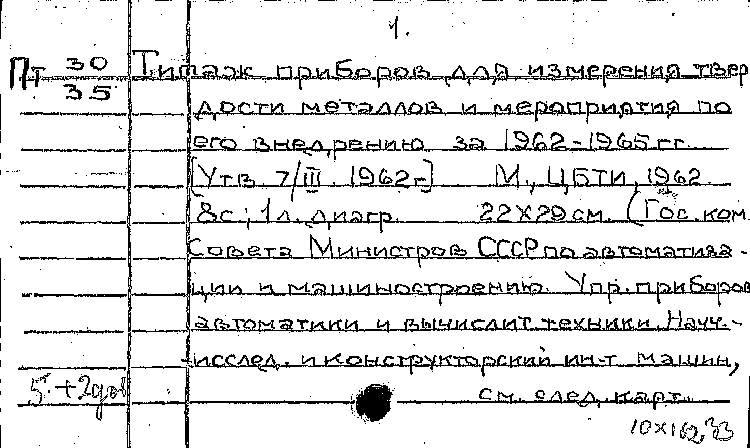 1.
Пт 30/35 Типаж приборов для измерения твер
дости металлов и мероприятия по
его внедрению за 1962-1965 гг.
[Утв. 7/III. 1962г.] М., ЦБТИ, 1962
8с.; 1л. диагр. 22х29см. (Гос. ком.
Совета Министров СССР по автоматиза-
ции и машиностроению. Упр. приборов
автоматики и вычислит. техники. Науч.-
исслед. и конструкторский ин-т машин,
5. +2доб
см. след. карт.
10х162,33